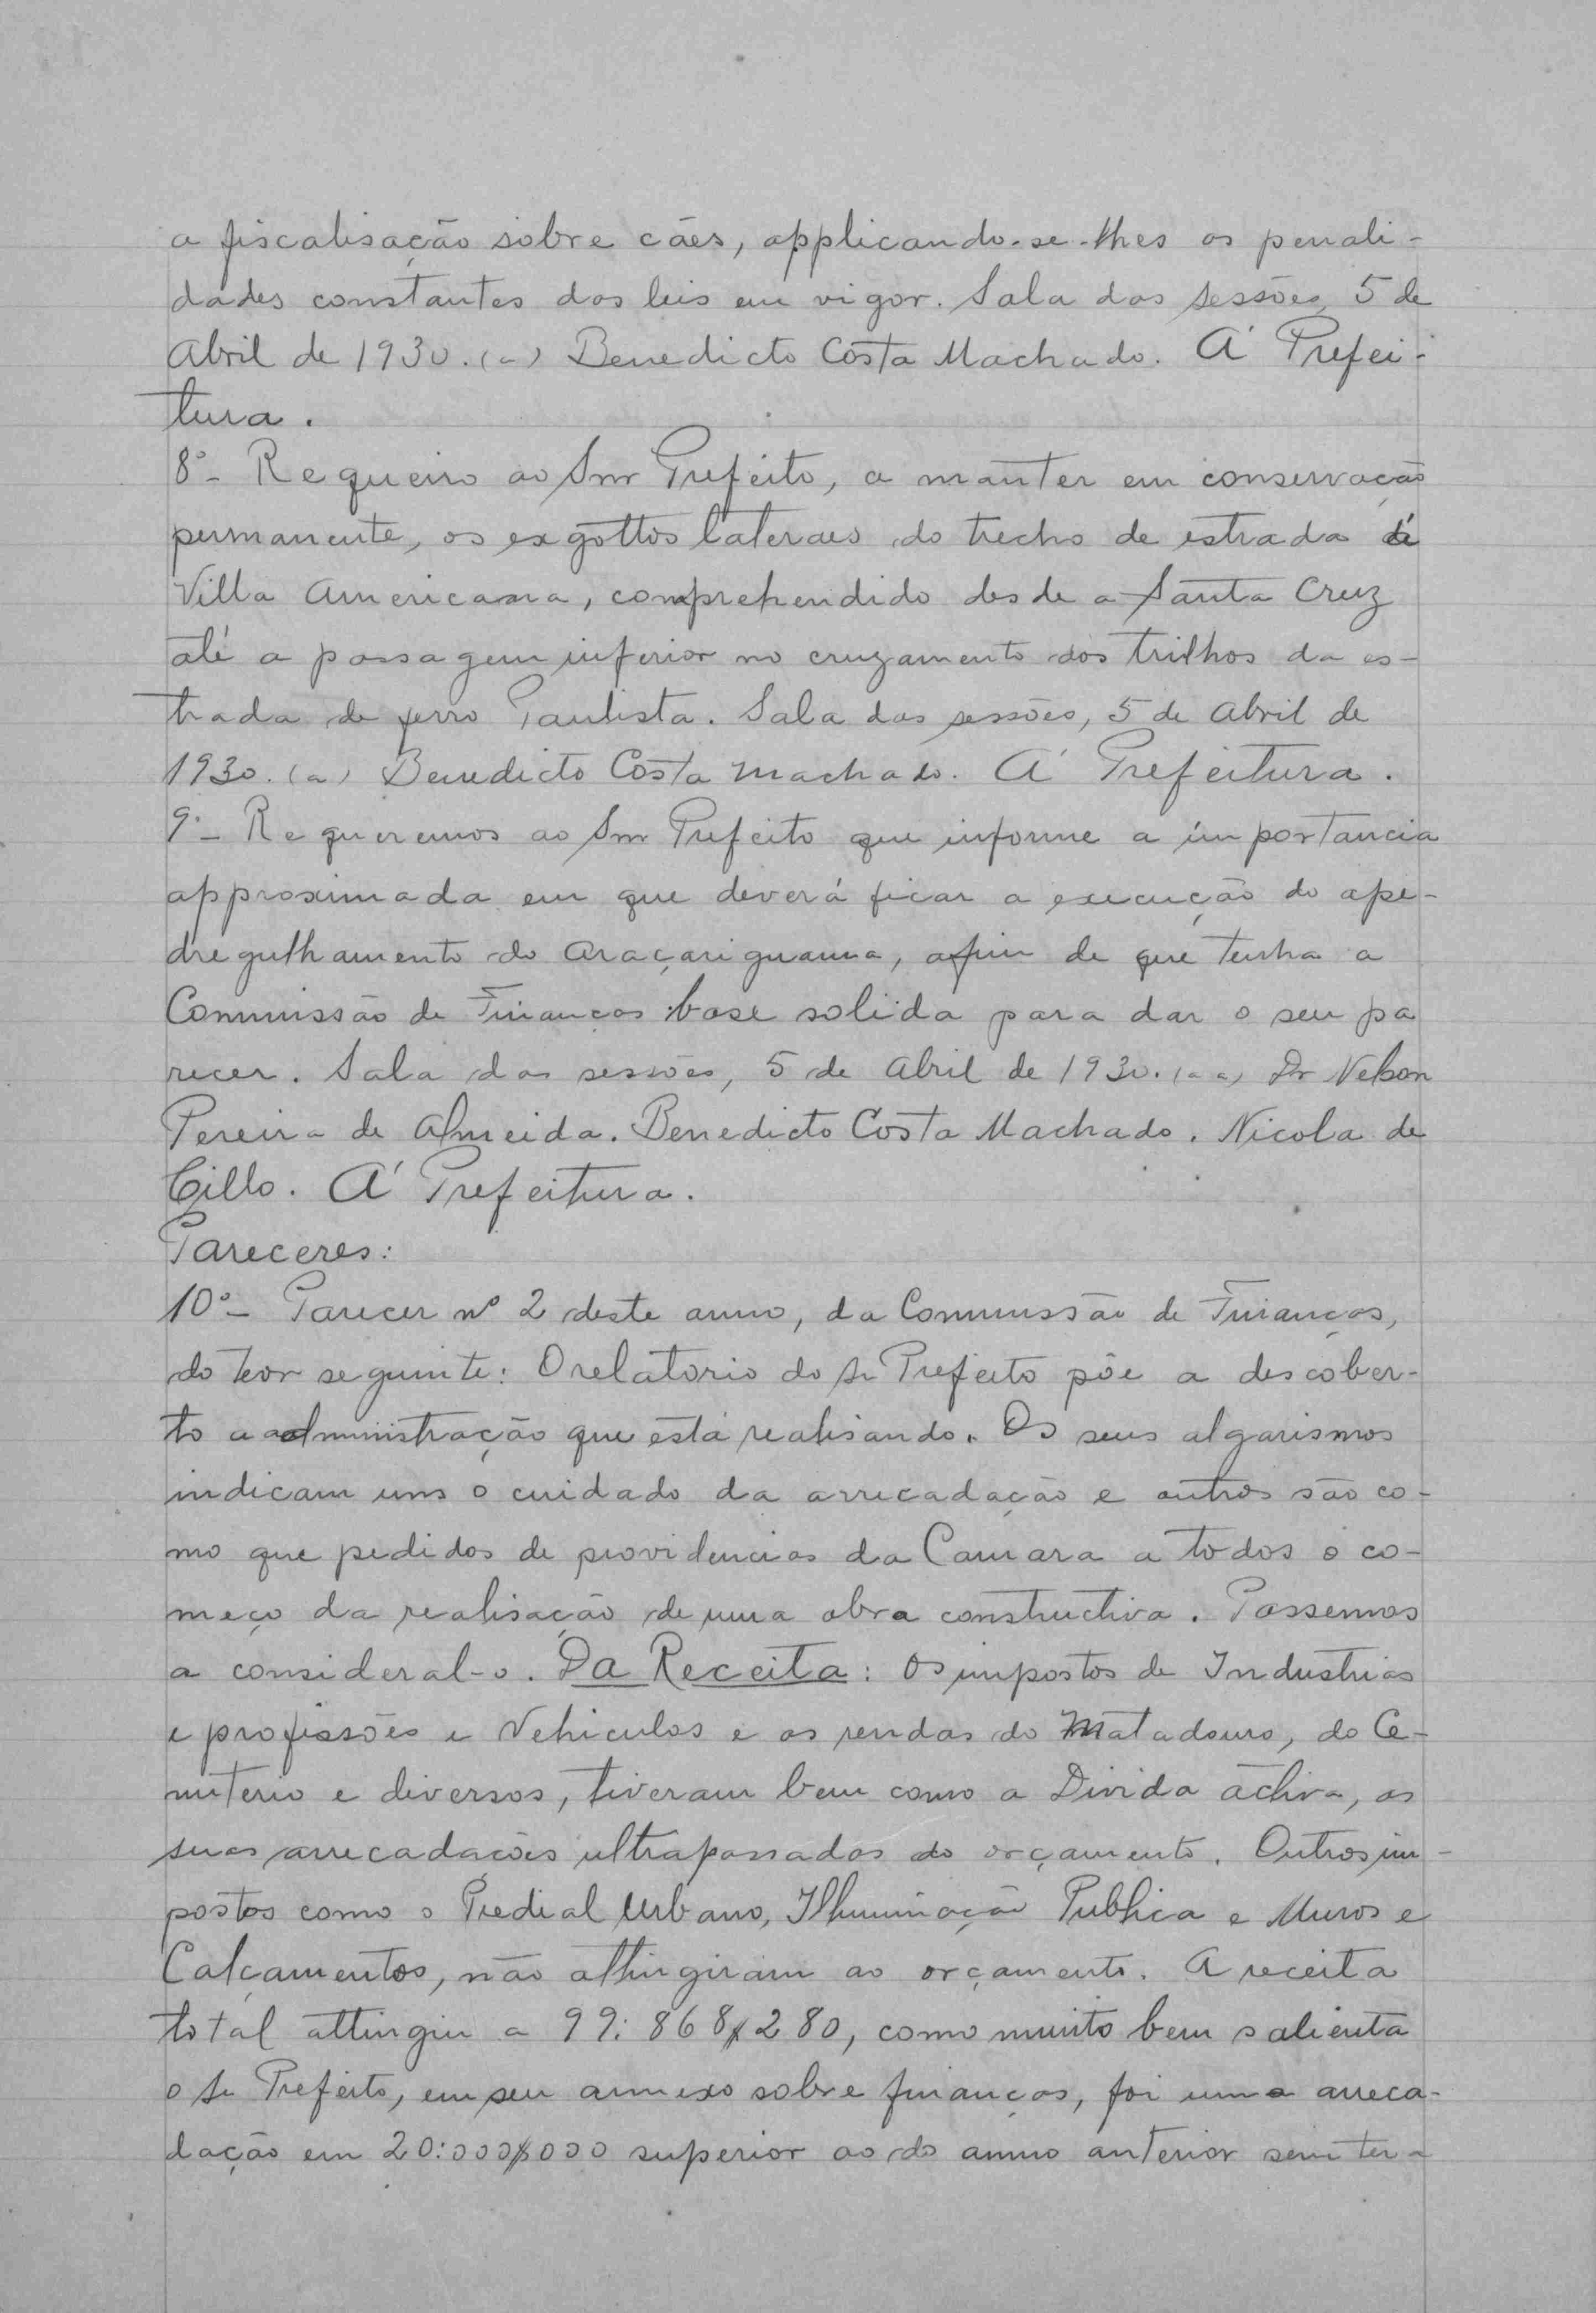 a fiscalisação sobre cães, applicando-se-lhes as penali-
dades constantes das leis em vigor. Sala das sessões, 5 de
Abril de 1930. (a) Benedicto Costa Machado. Á Prefei-
tura.
8º- Requeiro ao Snr Prefeito, a manter em conservação
permanente, os exgottos lateraes do trecho de estrada de
Villa Americana, comprehendido desde a Santa Cruz
até a passagem inferior no cruzamento dos trilhos da es-
trada de ferro Paulista. Sala das sessões, 5 de Abril de
1930. (a) Benedicto Costa Machado. Á Prefeitura.
9º- Requeremos ao Snr Prefeito que informe a importancia
approximada em que deverá ficar a execução do ape-
dregulhamento do Araçariguama, afim de que tenha a
Commissão de Finanças base solida para dar o seu pa
recer. Sala das sessões, 5 de Abril de 1930. (aa) Dr Nelson
Pereira de Almeida. Benedicto Costa Machado. Nicola de
Cillo. Á Prefeitura.
Pareceres:
10º- Parecer nº 2 deste anno, da Commissão de Finanças,
do teor seguinte: O relatorio do Sr Prefeito põe a descober-
to a administração que está realisando. Os seus algarismos
indicam uns o cuidado da arrecadação e outros são co-
mo que pedidos de providencias da Camara a todos o co-
meço da realisação de uma obra constructiva. Passemos
a consideral-o. Da Receita: Os impostos de Industrias
e profissões e Vehiculos e as rendas do Matadouro, do Ce-
miterio e diversos, tiveram bem como a Divida activa, as
suas arrecadações ultrapassadas do orçamento. Outros im-
postos como o Predial Urbano, Illuminação Publica e Muros e
Calçamentos, não attingiram ao orçamento. A receita
total attingiu a 99:868$280, como muito bem salienta
o Sr Prefeito, em seu annexo sobre finanças, foi uma arreca-
dação em 20:000$000 superior ao do anno anterior sem ter a